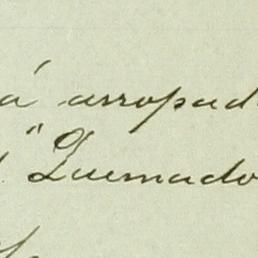 á arropad
" Quemado